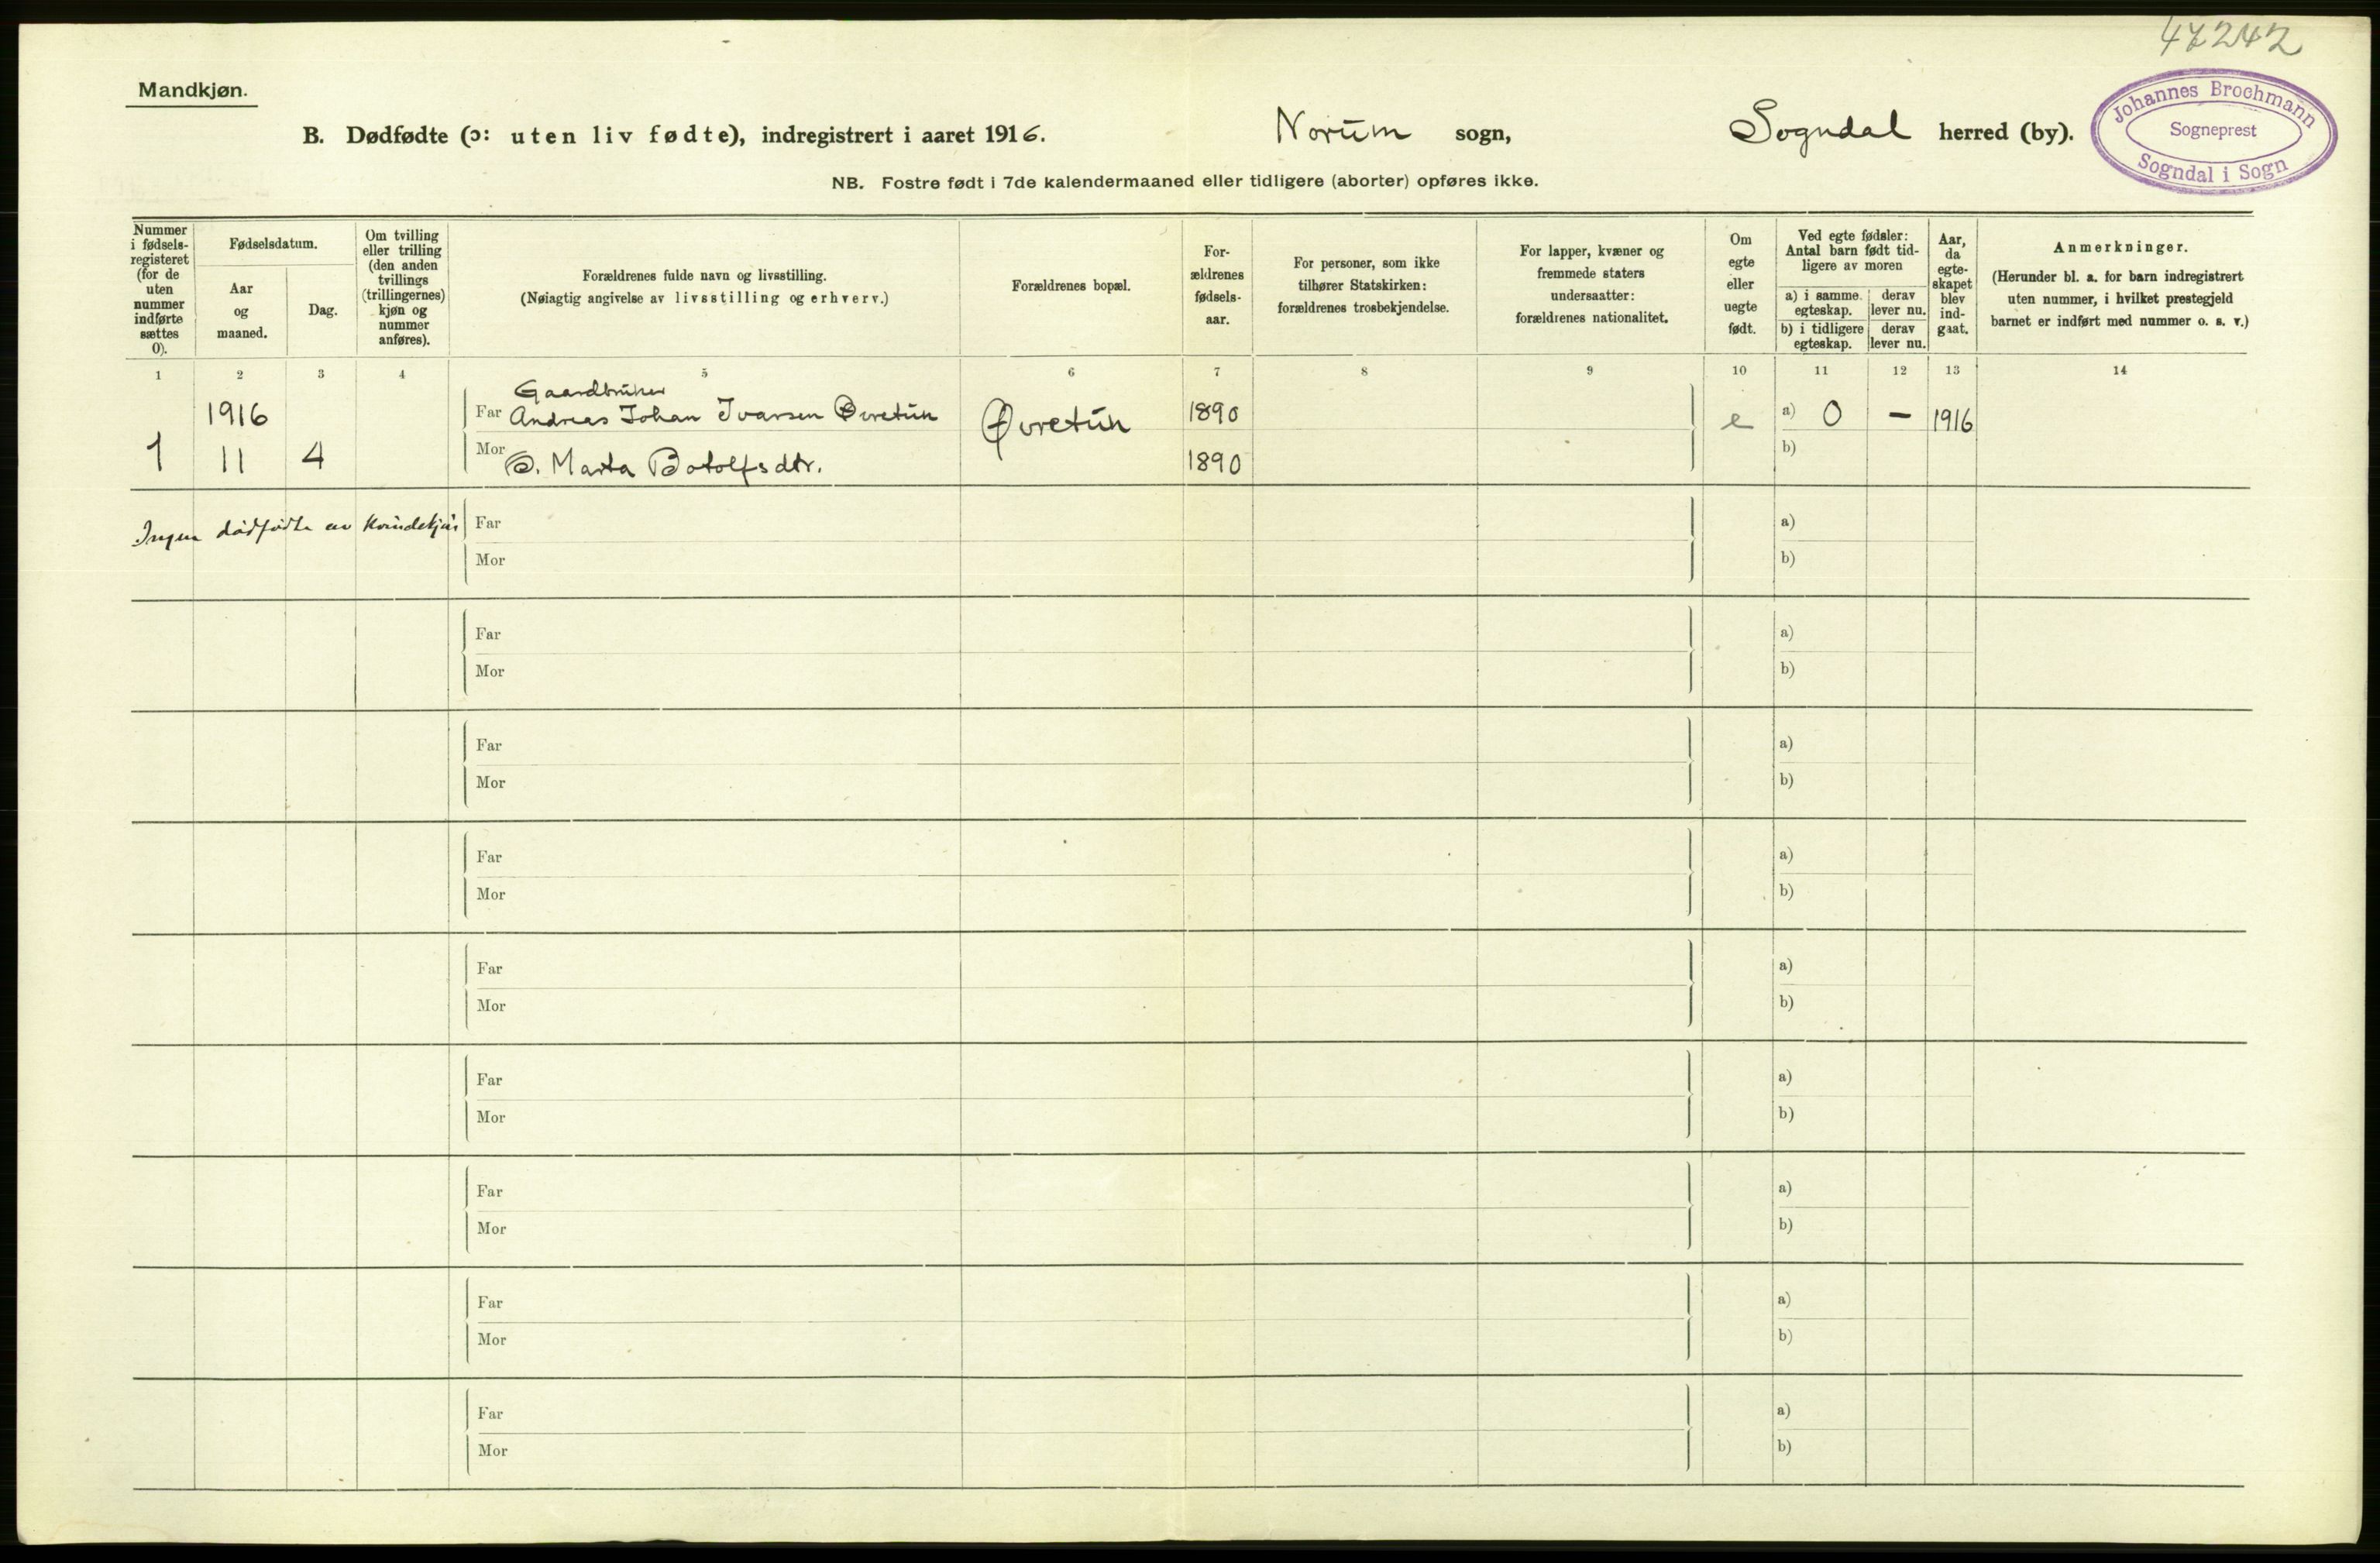 47242
Mandkjøn.
B. Dødfødte (ɔ: uten liv fødte), indregistrert i aaret 1916. Norum sogn, Sogndal herred (by).
Johannes Brochmann
Sogneprest
Sogndal i Sogn
NB. Fostre født i 7de kalendermaaned eller tidligere (aborter) opføres ikke.
Nummer i fødsels-registeret (for de uten nummer indførte sættes 0).
Fødselsdatum.
Aar og maaned.
Dag.
Om tvilling eller trilling (den anden tvillings (trillingernes) kjøn og nummer anføres).
Forældrenes fulde navn og livsstilling.
(Nøiagtig angivelse av livsstilling og erhverv.)
Forældrenes bopæl.
For-ældrenes fødsels-aar.
For personer, som ikke tilhører Statskirken: forældrenes trosbekjendelse.
For lapper, kvæner og fremmede staters undersaatter: forældrenes nationalitet.
Om egte eller uegte født.
Ved egte fødsler: Antal barn født tid-ligere av moren
a) i samme egteskap. derav lever nu.
b) i tidligere egteskap. derav lever nu.
Aar, da egte-skapet blev ind-gaat.
Anmerkninger.
(Herunder bl. a. for barn indregistrert uten nummer, i hvilket prestegjeld barnet er indført med nummer o. s. v.)
1 2 3 4 5 6 7 8 9 10 11 12 13 14
Gaardbruker
1916 Far Andreas Johan Ivarsen Øvretun Øvretun 1890 e a) 0 – 1916
1 11 4 Mor Marta Botolfsdtr. 1890 b)
Ingen dødfødte av kvindekjøn Far a)
Mor b)
Far a)
Mor b)
Far a)
Mor b)
Far a)
Mor b)
Far a)
Mor b)
Far a)
Mor b)
Far a)
Mor b)
Far a)
Mor b)
Far a)
Mor b)